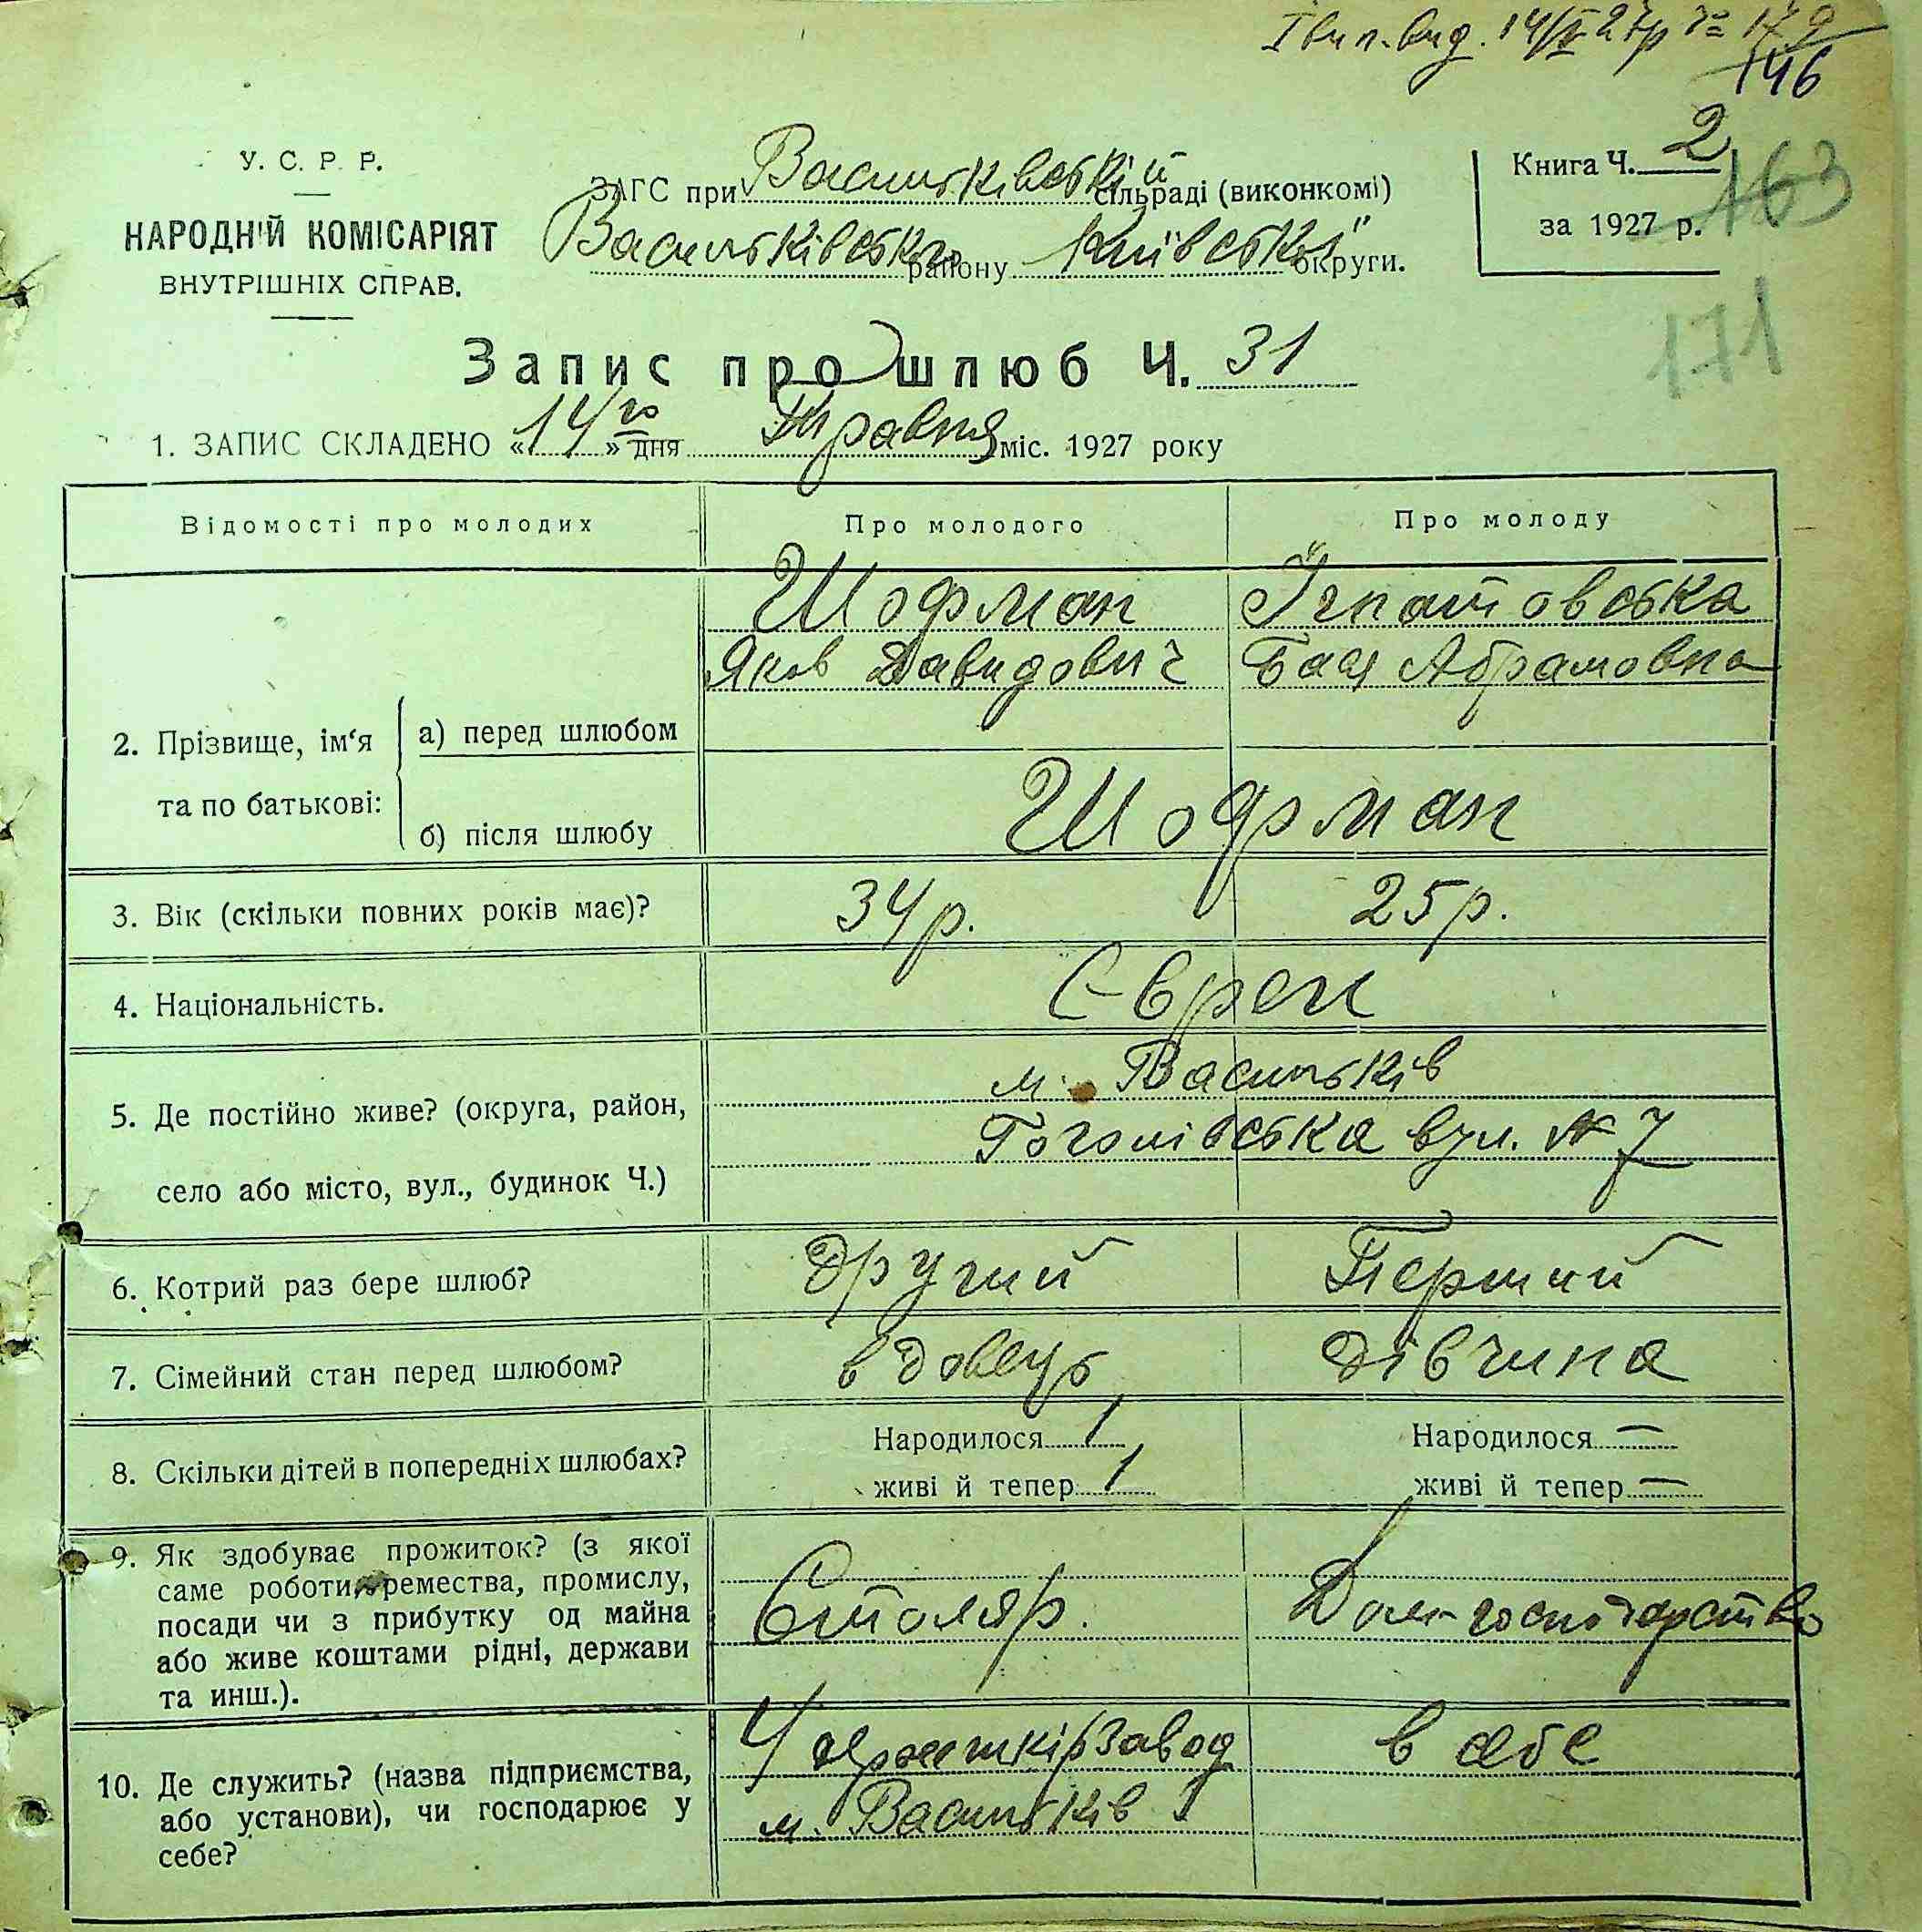 І вип. вид. 14/V 27р
146
У. С. Р. Р.
НАРОДНІЙ КОМІСАРІЯТ
ВНУТРІШНІХ СПРАВ.
ЗАГС при Васильківській сільраді (виконкомі)
Васильківськго району Київської округи.
Книга Ч. 2
за 1927 р.
163
171
Запис про шлюб Ч. 31
1. ЗАПИС СКЛАДЕНО «14го» дня Травня міс. 1927 року
Відомості про молодих Про молодого Про молоду
Шофман Ігнатовська
Яков Давидович Бася Абрамовна
2. Прізвище, ім'я та по батькові: а) перед шлюбом
б) після шлюбу Шофман
3. Вік (скільки повних років має)? 34 р. 25 р.
4. Національність. Євреи
5. Де постійно живе? (округа, район,
село або місто, вул., будинок Ч.)
м. Васильків
Гоголівська вул. № 7
6. Котрий раз бере шлюб? Другий Перший
7. Сімейний стан перед шлюбом? вдовець дівчина
8. Скільки дітей в попередніх шлюбах?
Народилося 1 Народилося —
живі й тепер 1 живі й тепер —
9. Як здобуває прожиток? (з якої
саме роботи, ремества, промислу,
посади чи з прибутку од майна
або живе коштами рідні, держави
та инш.).
Столяр. Дом-господарство
10. Де служить? (назва підприємства,
або установи), чи господарює у
себе?
Держшкірзавод в себе
м. Васильків